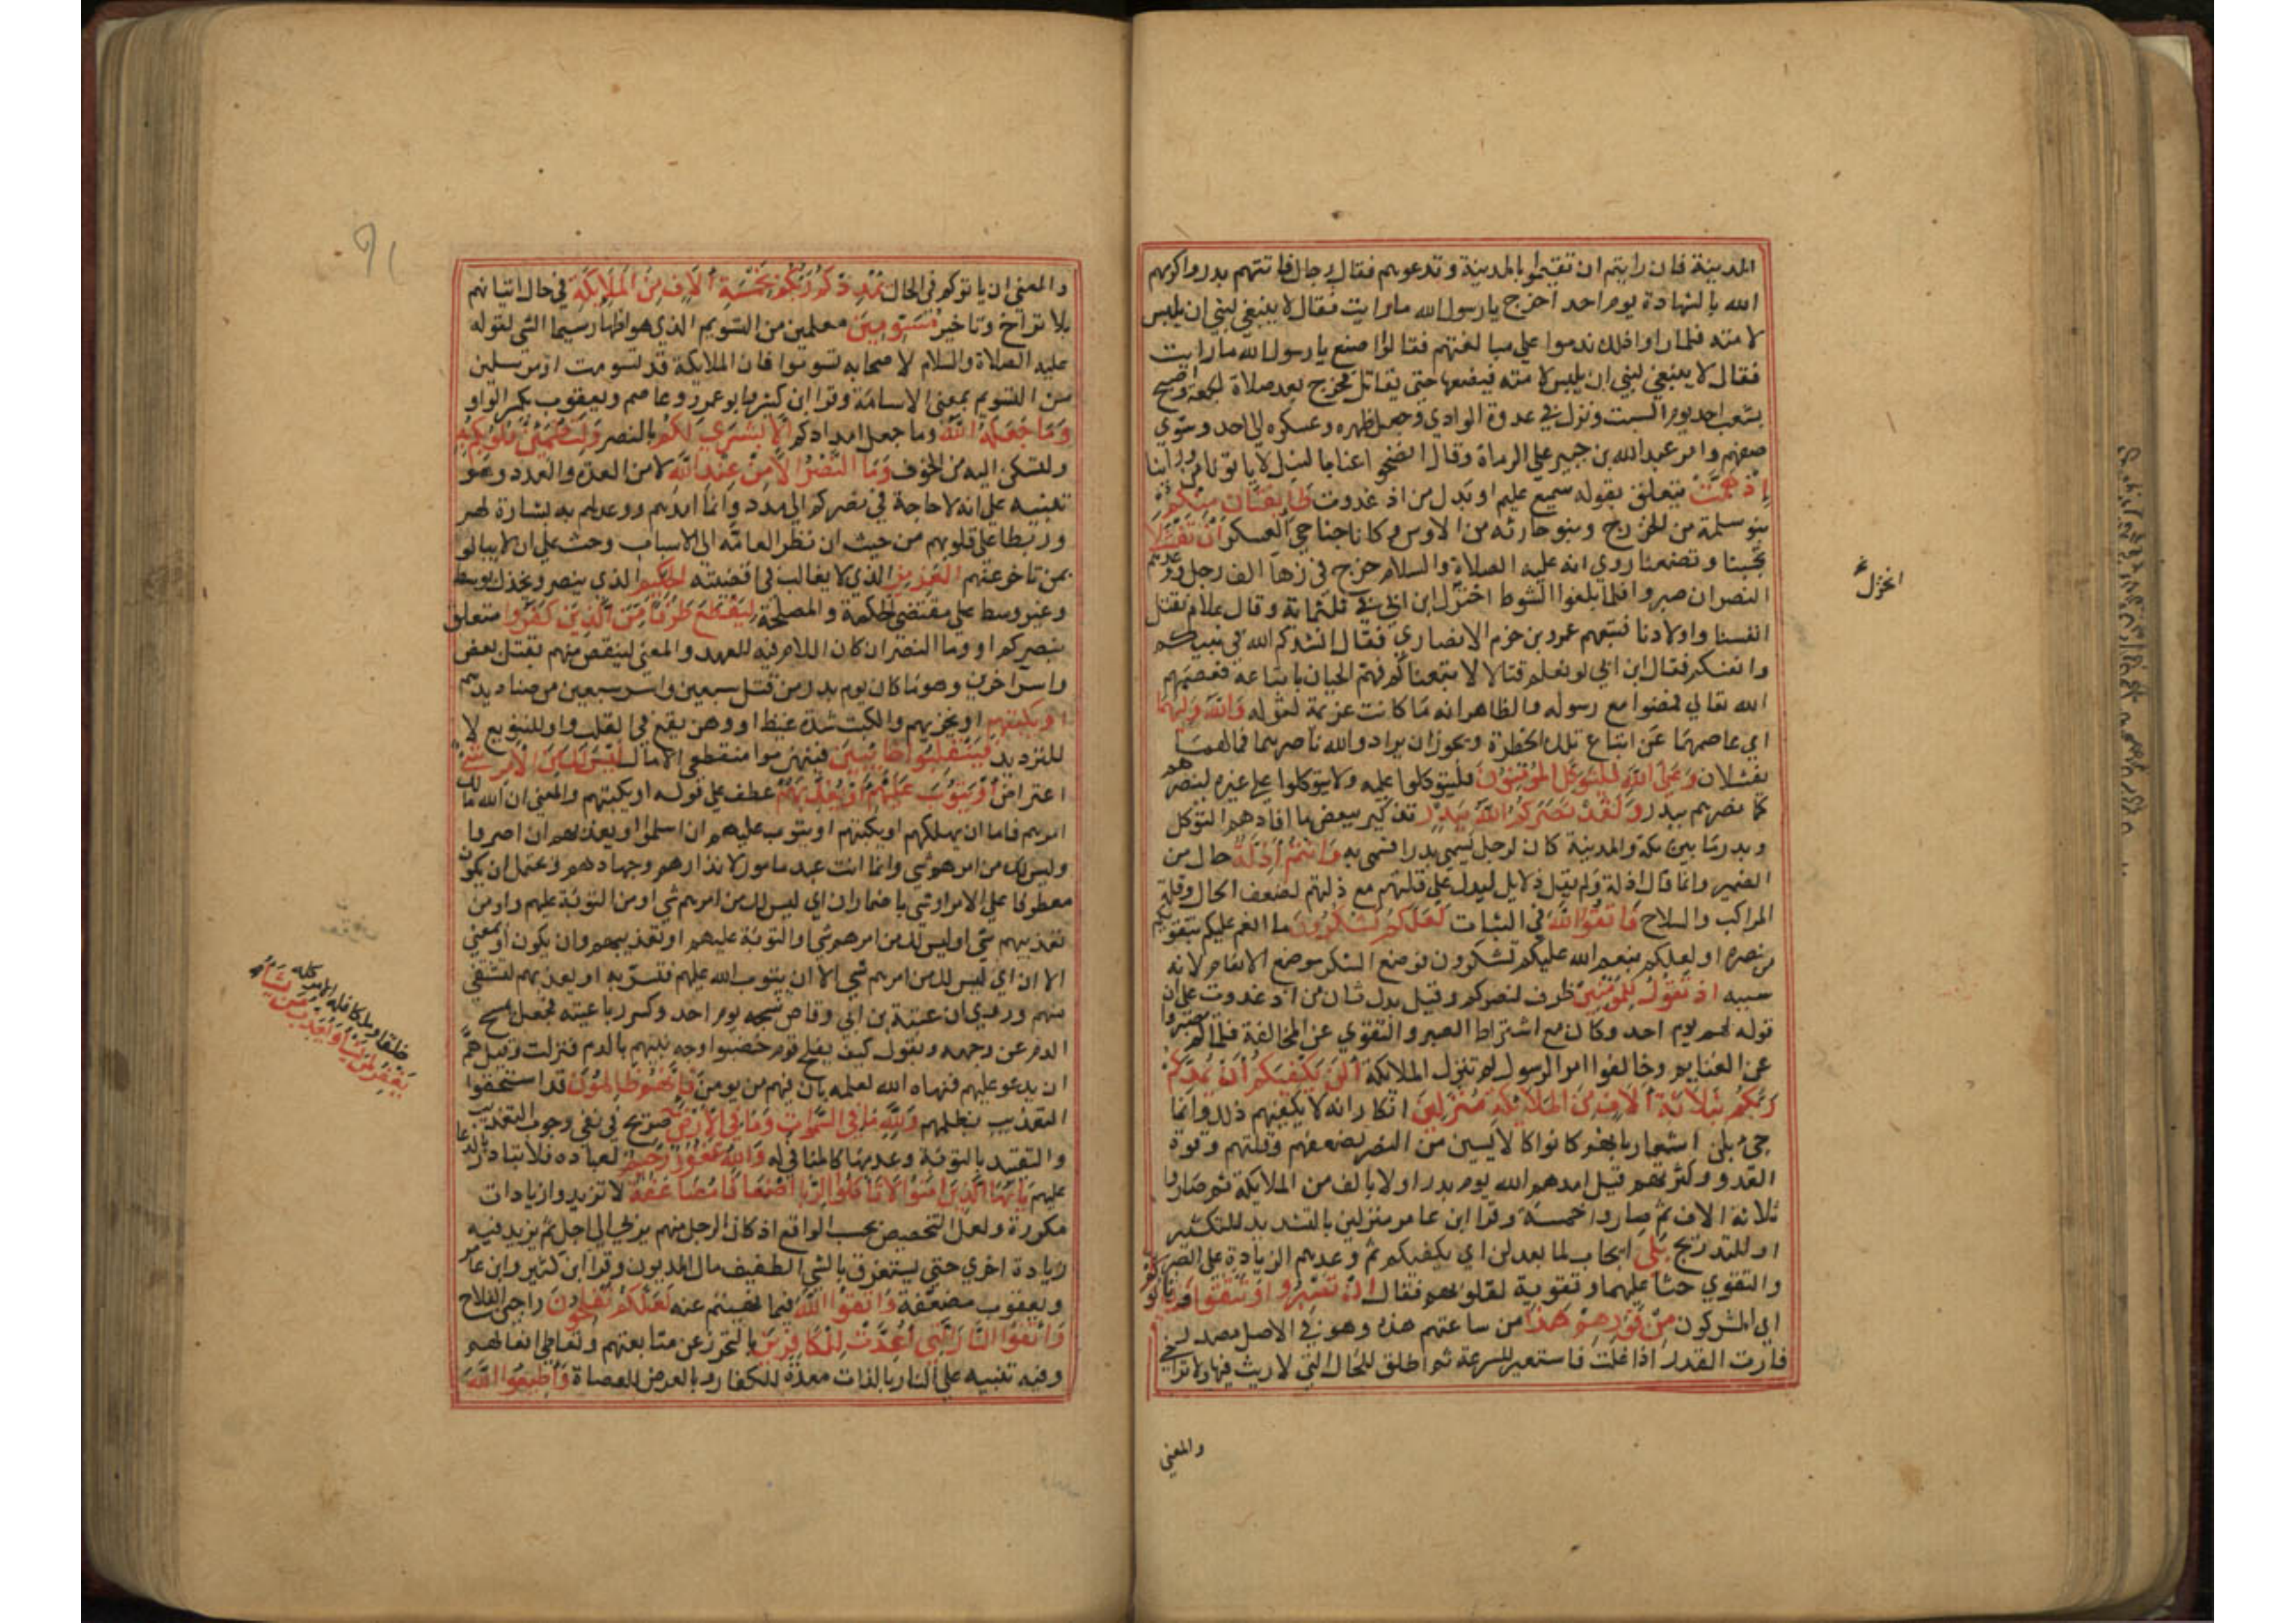 المدينة فان رايتم ان تقيموا بالمدينة وتدعوهم فقال رجال فاتتهم بدر واكرمهم
الله بالشهادة يوم احد اخرج يا رسول الله ما رايت فقال لا ينبغي لنبي ان يلبس
لامته فلما راوا ذلك ندموا علي مبالغتهم فقالوا اصنع يا رسول الله ما رايت
فقال لا ينبغي لنبي ان يلبس لامته فيضعها حتي يقاتل فخرج بعد صلاة الجمعة واصبح
بشعب احد يوم السبت ونزل في عدوة الوادي وجعل ظهره وعسكره الي احد وسوي
صفهم وامر عبد الله بن جبير علي الرماة وقال انضحوا عنا بالنبل لا ياتونا من وراينا
اِذْ هَمَّتْ يتعلق بقوله سميع عليم او بدل من اذ غدوت طَايِفَتَانِ مِنْكُمْ
بنو سلمة من الخزرج وبنو حارثه من الاوس وكانا جناحي العسكر اَنْ تَفْشَلَا
تجبنا وتضعفا روي انه عليه الصلاة والسلام خرج في زهآ الف رجل ووعدهم
النصر ان صبروا فلما بلغوا الشوط اختزل ابن ابي في ثلثماية وقال علام نقتل
انفسنا واولادنا فتبعهم عمرو بن حزم الانصاري فقال انشدكم الله في نبيكم
وانفسكم فقال ابن ابي لو نعلم قتالا لا تبعناكم فهم الحيان باتباعه فعصمهم
الله تعالي فمضوا مع رسوله والظاهر انه ما كانت عزيمة لقوله وَاللهُ وَلِيُّهُمَا
اي عاصمهما عن اتباع تلك الخطرة ويجوز ان يراد والله ناصرهما فمالهما
يفشلان وَعَلَي اللهِ فَلْيَتَوَكَّلِ الْمُؤْمِنُونَ فليتوكلوا عليه ولا يتوكلوا علي غيره لينصرهم
كما نصرهم ببدر وَلَقَدْ نَصَرَكُمُ اللهُ بِبَدْرٍ تذكير ببعض ما افادهم التوكل
وبدر ما بين مكة والمدينة كان لرجل يسمي بدرا فسمي به وَاَنْتُمْ اَذِلَّةٌ حال من
الضمير وانما قال اذلة ولم يقل ذلايل ليدل علي قلتهم مع ذلتهم لضعف الحال وقلة
المراكب والسلاح فَاتَّقُوا اللهَ في الثبات لَعَلَّكُمْ تَشْكُرُونَ ما انعم عليكم بتقويكم
من نصره او لعلكم ينعم الله عليكم تشكرون فوضع الشكر موضع الانعام لانه
سببه اِذْ تَقُولُ لِلْمُؤْمِنِينَ ظرف لنصركم وقيل بدل ثان من اذ غدوت علي ان
قوله لهم يوم احد وكان مع اشتراط الصبر والتقوي عن المخالفة فلما لم يصبروا
عن الغنايم وخالفوا امر الرسول لم تنزل الملايكة اَلَنْ يَكْفِيَكُمْ اَنْ يُمِدَّكُمْ
رَبُّكُمْ بِثَلَاثَةِ اٰلَافٍ مِنَ الْمَلَايِكَةِ مُنْزَلِينَ انكار انه لا يكفيهم ذلك وانما
جيء بلن اشعارا بانهم كانوا كالايسين من النصر لضعفهم وقلتهم وقوة
العدو وكثرتهم قيل امدهم الله يوم بدر اولا بالف من الملايكة ثم صاروا
ثلاثة الاف ثم صاروا خمسة وقرا ابن عامر منزلين بالتشديد للتكثير
او للتدريج بَلَي ايجاب لما بعد لن اي يكفيكم ثم وعدهم الزيادة علي الصبر
والتقوي حثا عليهما وتقوية لقلوبهم فقال اِنْ تَصْبِرُوا وَتَتَّقُوا وَيَاْتُوكُمْ
اي المشركون مِنْ فَوْرِهِمْ هَذَا من ساعتهم هذه وهو في الاصل مصدر من
فارت القدر اذا غلت فاستعير للسرعة ثم اطلق للحال التي لا ريث فيها ولا تراخي
انخزل
والمعني
والمعني ان ياتوكم في الحال يُمْدِدْكُمْ رَبُّكُمْ بِخَمْسَةِ اٰلَافٍ مِنَ الْمَلَايِكَةِ في حال اتيانهم
بلا تراخ وتاخير مُسَوِّمِينَ معلمين من التسويم الذي هو اظهار سيما الشي لقوله
عليه الصلاة والسلام لاصحابه تسوموا فان الملايكة قد تسومت او مرسلين
من التسويم بمعني الاسامة وقرا ابن كثير وابو عمرو وعاصم ويعقوب بكسر الواو
وَمَا جَعَلَهُ اللهُ وما جعل امدادكم اِلَّا بُشْرَي لَكُمْ بالنصر وَلِتَطْمَيِنَّ قُلُوبُكُمْ بِهِ
ولتسكن اليه من الخوف وَمَا النَّصْرُ اِلَّا مِنْ عِنْدِ اللهِ لا من العدة والعدد وهو
تنبيه علي انه لا حاجة في نصرهم الي مدد وانما امدهم ووعدلهم به بشارة لهم
وربطا علي قلوبهم من حيث ان نظر العامة الي الاسباب وحث علي ان لا يبالوا
بمن تاخر عنهم الْعَزِيزِ الذي لا يغالب في اقضيته الْحَكِيمِ الذي ينصر ويخذل بوسط
وغير وسط علي مقتضي الحكمة والمصلحة لِيَقْطَعَ طَرَفًا مِنَ الَّذِينَ كَفَرُوا متعلق
بنصركم او وما النصر ان كان اللام فيه للعهد والمعني لينقص منهم بقتل بعض
واسر اخرين وهو ما كان يوم بدر من قتل سبعين واسر سبعين من صناديدهم
اَوْ يَكْبِتَهُمْ او يخزيهم والكبت شدة غيظ او وهن يقع في القلب واو للتنويع لا
للترديد فَيَنْقَلِبُوا خَايِبِينَ فينهزموا منقطعي الامال لَيْسَ لَكَ مِنَ الْاَمْرِ شَيْءٌ
اعتراض اَوْ يَتُوبَ عَلَيْهِمْ اَوْ يُعَذِّبَهُمْ عطف علي قوله او يكبتهم والمعني ان الله مالك
امرهم فاما ان يهلكهم او يكبتهم او يتوب عليهم ان اسلموا او يعذبهم ان اصروا
وليس لك من امرهم شي وانما انت عبد مامور لانذارهم وجهادهم ويحتمل ان يكون
معطوفا علي الامر او شي باضمار ان اي ليس لك من امرهم شي او من التوبة عليهم او من
تعذيبهم شي او ليس لك من امرهم شي والتوبة عليهم او تعذيبهم وان يكون او بمعني
الا ان اي ليس لك من امرهم شي الا ان يتوب الله عليهم فتسر به او يعذبهم لتشتفي
منهم وروي ان عتبة بن ابي وقاص شجه يوم احد وكسر رباعيته فجعل يمسح
الدم عن وجهه ويقول كيف يفلح قوم خضبوا وجه نبيهم بالدم فنزلت وقيل هَمَّ
ان يدعو عليهم فنهاه الله لعلمه بان فيهم من يومن فَاِنَّهُمْ ظَالِمُونَ قد استحقوا
التعذيب بظلمهم وَلِلَّهِ مَا فِي السَّمٰوَاتِ وَمَا فِي الْاَرْضِ صريح في نفي وجوب التعذيب
والتقييد بالتوبة وعدمها كالمنافي له وَاللهُ غَفُورٌ رَحِيمٌ لعباده فلا تبادر بالدعا
عليهم يَا اَيُّهَا الَّذِينَ اٰمَنُوا لَا تَاْكُلُوا الرِّبَا اَضْعَافًا مُضَاعَفَةً لا تزيدوا زيادات
مكررة ولعل التخصيص بحسب الواقع اذ كان الرجل منهم يربي الي اجل ثم يزيد فيه
زيادة اخري حتي يستغرق بالشي الطفيف مال المديون وقرا ابن كثير وابن عامر
ويعقوب مضعفة وَاتَّقُوا اللهَ فيما نهيتم عنه لَعَلَّكُمْ تُفْلِحُونَ راجين الفلاح
وَاتَّقُوا النَّارَ الَّتِي اُعِدَّتْ لِلْكَافِرِينَ بالتحرز عن متابعتهم وتعاطي افعالهم
وفيه تنبيه علي ان النار بالذات معدة للكفار وبالعرض للعصاة وَاَطِيعُوا اللهَ
خلقا وملكا فله الامر كله
يَغْفِرُ لِمَنْ يَشَاءُ وَيُعَذِّبُ مَنْ يَشَاءُ